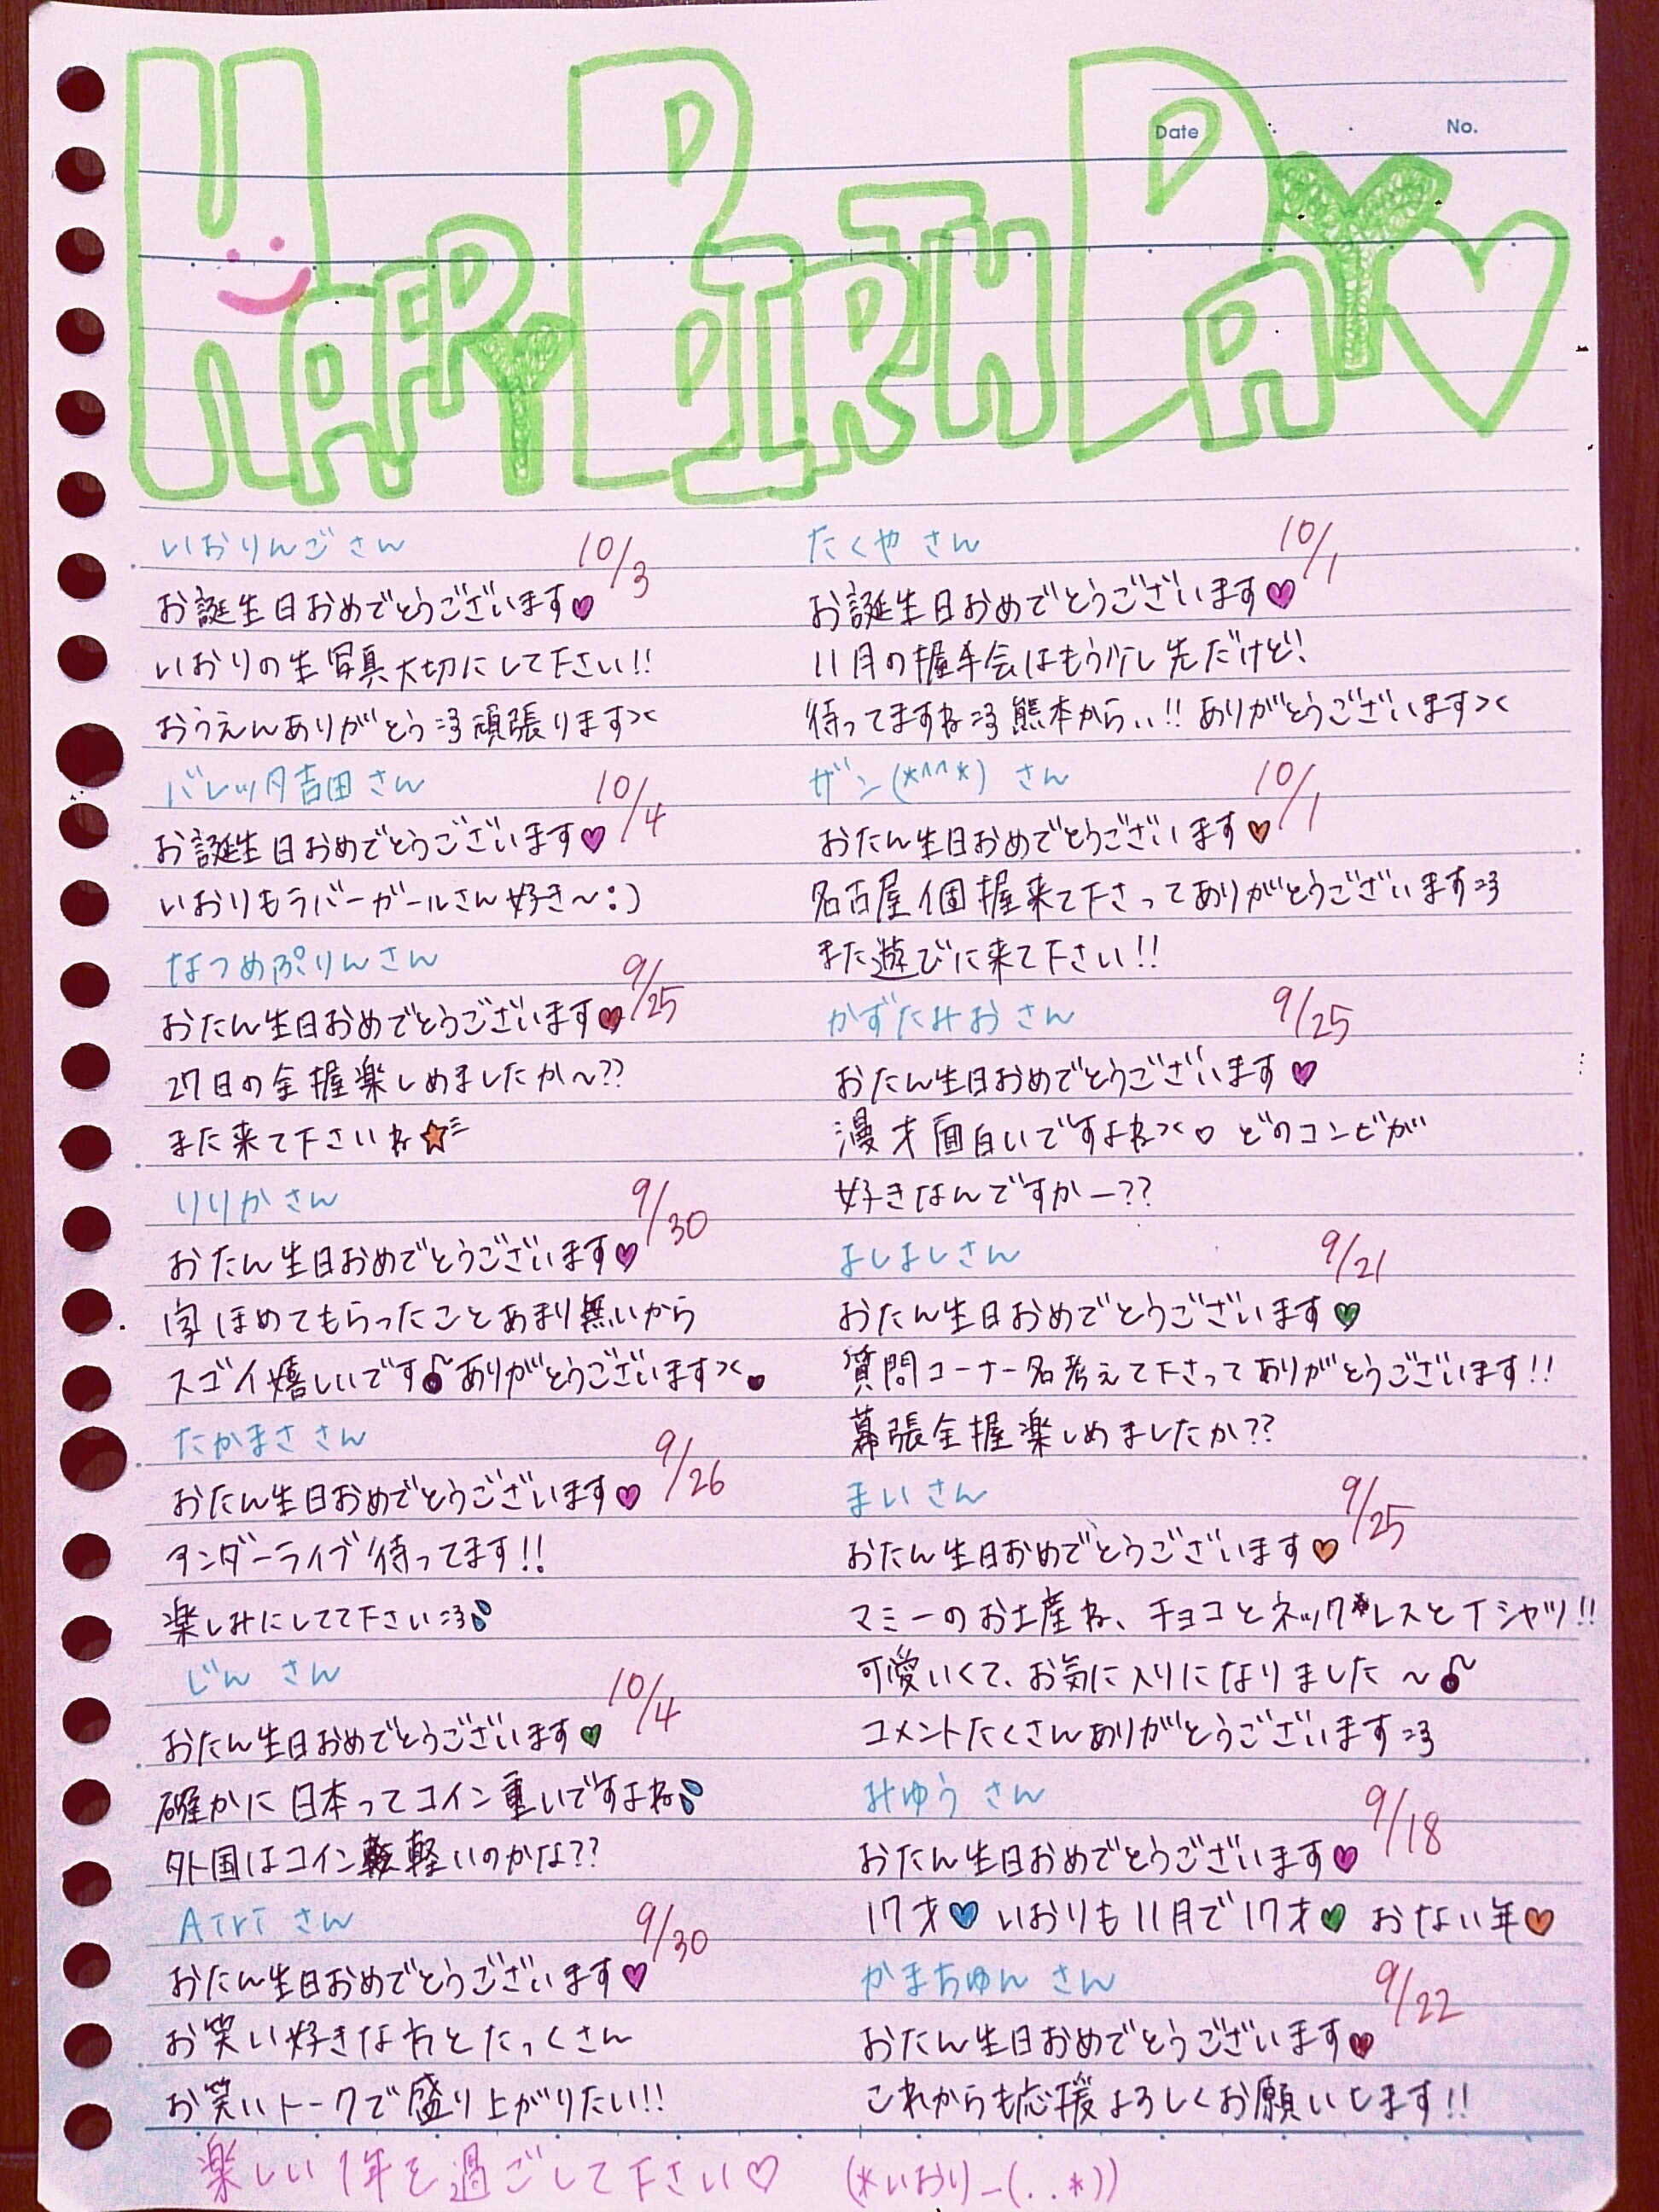 Date . . No.
HAPPY BIRTHDAY♡
いおりんごさん 10/3
お誕生日おめでとうございます♥
いおりの生写真大切にして下さい!!
おうえんありがとう:3頑張ります><
バレッタ吉田さん 10/4
お誕生日おめでとうございます♥
いおりもラバーガールさん好き〜:)
なつめぷりんさん 9/25
おたん生日おめでとうございます♥
27日の全握楽しめましたか〜??
また来て下さいね☆彡
りりかさん 9/30
おたん生日おめでとうございます♥
字ほめてもらったことあまり無いから
スゴイ嬉しいです♪ありがとうございます><。
たかまささん 9/26
おたん生日おめでとうございます♥
アンダーライブ待ってます!!
楽しみにしてて下さい:3💦
じんさん 10/4
おたん生日おめでとうございます♥
確かに日本ってコイン重いですよね💦
外国はコイン軽いのかな??
AIRIさん 9/30
おたん生日おめでとうございます♥
お笑い好きな方とたっくさん
お笑いトークで盛り上がりたい!!
たくやさん 10/1
お誕生日おめでとうございます♥
11月の握手会はもう少し先だけど!
待ってますね:3熊本からぃ!!ありがとうございます><
ザン(*^^*)さん 10/1
おたん生日おめでとうございます♥
名古屋個握来て下さってありがとうございます:3
また遊びに来て下さい!!
かずたみおさん 9/25
おたん生日おめでとうございます♥
漫才面白いですよね><♡どのコンビが
好きなんですかー??
よしよしさん 9/21
おたん生日おめでとうございます♥
質問コーナー名考えて下さってありがとうございます!!
幕張全握楽しめましたか??
まいさん 9/25
おたん生日おめでとうございます♥
マミーのお土産ね、チョコとネックレスとTシャツ!!
可愛いくて、お気に入りになりました〜♪
コメントたくさんありがとうございます:3
みゆうさん 9/18
おたん生日おめでとうございます♥
17才♥いおりも11月で17才♥おない年♥
かまちゅんさん 9/22
おたん生日おめでとうございます♥
これからも応援よろしくお願いします!!
楽しい1年を過ごして下さい♡ (*いおり_(..*))